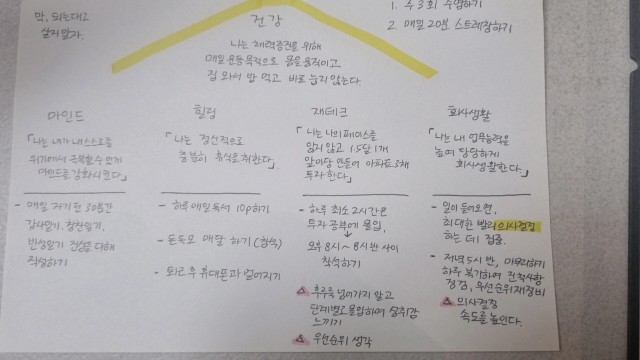 막, 되는대로
살지말자.
1. 주 3회 수영하기
2. 매일 20분 스트레칭하기
건강
나는 체력증진을 위해
매일 운동목적으로 몸을 움직이고,
집 와서 밥 먹고 바로 눕지 않는다.
마인드
「나는 내가 내 스스로를
위기에서 극복할 수 있게
마인드를 강화시킨다」
- 매일 자기 전 30분간
감사일기, 칭찬일기,
반성일기 건설을 더해
작성하기
힐링
「나는 정신적으로
충분히 휴식을 취한다.」
- 하루 매일 독서 10p하기
- 돈독모 매달 하기 (참석)
- 퇴근 후 휴대폰과 멀어지기
재테크
「나는 나의 페이스를
잃지 않고 1.5달 1개
앞마당 만들어 아파트 3채
투자한다.」
- 하루 최소 2시간은
투자 공부에 몰입,
오후 8시~8시반 사이
착석하기
후루룩 넘어가지 말고
단계별로 몰입하며 성취감
느끼기
우선순위 생각
회사생활
「나는 내 업무능력을
높여 당당하게
회사생활한다.」
- 일이 들어오면,
최대한 빨리 의사결정
하는 데 집중.
- 저녁 5시 반, 마무리하기
하루 복기하여 진척사항
점검, 우선순위재정비
의사결정
속도를 높인다.